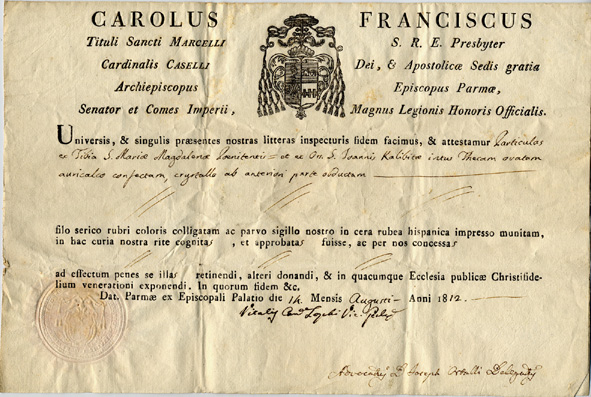 CAROLUS FRANCISCUS
Tituli Sancti MARCELLI S. R. E. Presbyter
Cardinalis CASELLI Dei, & Apostolicæ Sedis gratia
Archiepiscopus Episcopus Parmæ,
Senator et Comes Imperii, Magnus Legionis Honoris Officialis.
Universis, & singulis præsentes nostras litteras inspecturis fidem facimus, & attestamur Particulas
ex Tibia S. Mariæ Magdalenæ Pœnitentis et ex S. Joannis intus Thecam ovatam
auricalco confectam, crystallo ab anteriori parte obductam
filo serico rubri coloris colligatam ac parvo sigillo nostro in cera rubea hispanica impresso munitam,
in hac curia nostra rite cognitas, et approbatas fuisse, ac per nos concessas
ad effectum penes se illas retinendi, alteri donandi, & in quacumque Ecclesia publicæ Christifide-
lium venerationi exponendi. In quorum fidem &c.
Dat. Parmæ ex Episcopali Palatio die 14 Mensis Augusti Anni 1812.
Joseph Ortalli